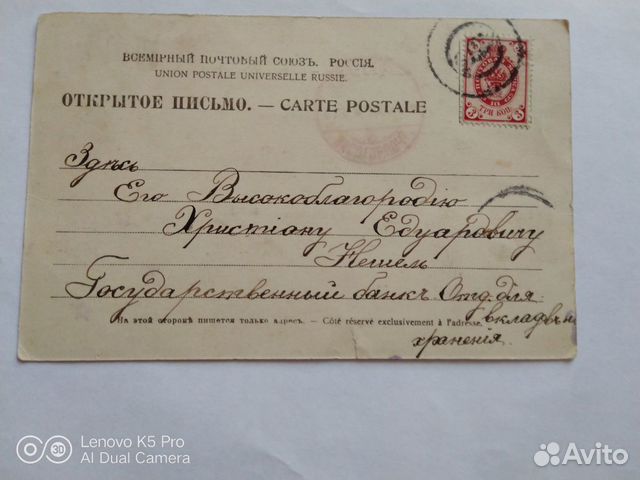 ВСЕМІРНЫЙ ПОЧТОВЫЙ СОЮЗЪ. РОССІЯ.
UNION POSTALE UNIVERSELLE RUSSIE.
ОТКРЫТОЕ ПИСЬМО. — CARTE POSTALE
3 ТРИ КОП. 3
Здѣсь
Его Высокоблагородію
Христіану Едуардовичу
Нешель
Государственный банкъ Отд. для
вкладовъ на
храненія.
На этой сторонѣ пишется только адресъ. — Côté réservé exclusivement à l'adresse.
Lenovo K5 Pro
AI Dual Camera
Avito